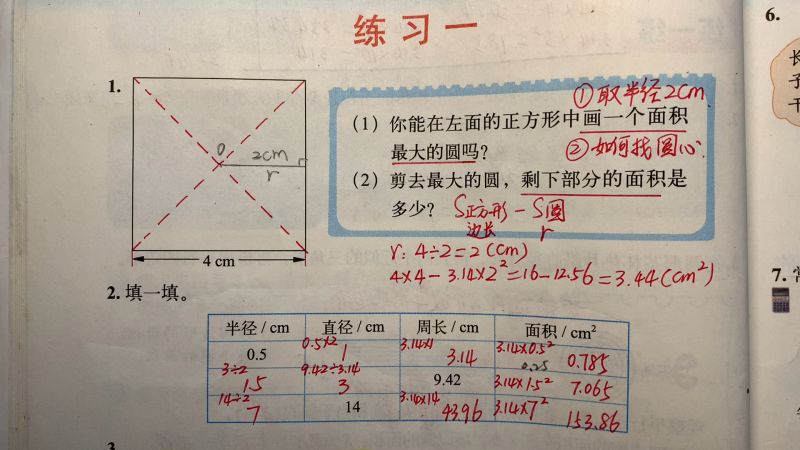 练习一
6.
1.
①取半径2cm
(1) 你能在左面的正方形中画一个面积
最大的圆吗?
②如何找圆心.
(2) 剪去最大的圆，剩下部分的面积是
多少?
S正方形－S圆
边长
r
O
2cm
r
4 cm
r: 4÷2=2(cm)
4×4－3.14×2²=16－12.56=3.44(cm²)
2. 填一填。
半径 / cm 直径 / cm 周长 / cm 面积 / cm²
0.5×2 3.14×1 3.14×0.5²
0.5 1 3.14 0.25 0.785
3÷2 9.42÷3.14
1.5 3 9.42 3.14×1.5² 7.065
14÷2 3.14×14 3.14×7²
7 14 43.96 153.86
7.
长
子
干